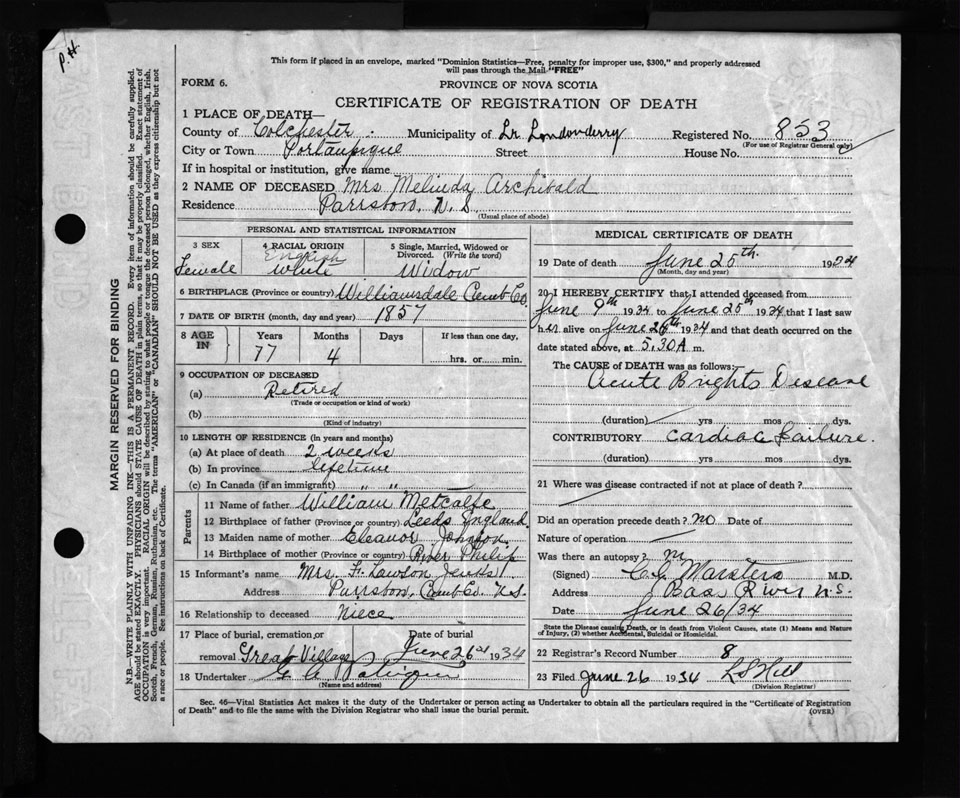 P.H.
This form if placed in an envelope, marked "Dominion Statistics—Free, penalty for improper use, $300," and properly addressed
will pass through the Mail "FREE"
FORM 6.
PROVINCE OF NOVA SCOTIA
CERTIFICATE OF REGISTRATION OF DEATH
1 PLACE OF DEATH—
County of Colchester. Municipality of Lr Londonderry Registered No. 853
(For use of Registrar General only)
City or Town Portaupique Street House No.
If in hospital or institution, give name
2 NAME OF DECEASED Mrs Melinda Archibald
Residence Parrsboro, N.S.
(Usual place of abode)
PERSONAL AND STATISTICAL INFORMATION
3 SEX 4 RACIAL ORIGIN 5 Single, Married, Widowed or Divorced. (Write the word)
Female English White Widow
6 BIRTHPLACE (Province or country) Williamsdale Cumb Co.
7 DATE OF BIRTH (month, day and year) 1857
8 AGE IN Years Months Days If less than one day,
77 4 hrs. or min.
9 OCCUPATION OF DECEASED
(a) Retired
(Trade or occupation or kind of work)
(b)
(Kind of industry)
10 LENGTH OF RESIDENCE (in years and months)
(a) At place of death 2 weeks
(b) In province lifetime
(c) In Canada (if an immigrant) " "
Parents
11 Name of father William Metcalfe
12 Birthplace of father (Province or country) Leeds England
13 Maiden name of mother Eleanor Johnson
14 Birthplace of mother (Province or country) River Philip
15 Informant's name Mrs. F. Lawson Jenks
Address Parrsboro, Cumb Co. N.S.
16 Relationship to deceased Niece
17 Place of burial, cremation, or removal Great Village Date of burial June 26th 1934
18 Undertaker
(Name and address)
MEDICAL CERTIFICATE OF DEATH
19 Date of death June 25th. 1934
(Month, day and year)
20 I HEREBY CERTIFY that I attended deceased from
June 9th 1934 to June 25th 1934 that I last saw
her alive on June 1934 and that death occurred on the
date stated above, at 5.30 A m.
The CAUSE of DEATH was as follows:
Acute Brights Disease
(duration) yrs mos dys.
CONTRIBUTORY Cardiac Failure.
(duration) yrs mos dys.
21 Where was disease contracted if not at place of death?
Did an operation precede death? no Date of
Nature of operation
Was there an autopsy?
(Signed) Marsters M.D.
Address Bass River N.S.
Date June 26/34
State the Disease causing Death, or in death from Violent Causes, state (1) Means and Nature of Injury, (2) whether Accidental, Suicidal or Homicidal.
22 Registrar's Record Number 8
23 Filed June 26 1934 Hill
(Division Registrar)
Sec. 46—Vital Statistics Act makes it the duty of the Undertaker or person acting as Undertaker to obtain all the particulars required in the "Certificate of Registration
of Death" and to file the same with the Division Registrar who shall issue the burial permit.
(OVER)
MARGIN RESERVED FOR BINDING
N.B.—WRITE PLAINLY WITH UNFADING INK—THIS IS A PERMANENT RECORD. Every item of information should be carefully supplied.
AGE should be stated EXACTLY. PHYSICIANS should STATE CAUSE OF DEATH in plain terms, so that it may be properly classified. Exact statement of
OCCUPATION is very important. RACIAL ORIGIN will be described by stating to what people or tongue the deceased person belonged, whether English, Irish,
Scotch, French, German, Russian, Ruthenian, etc. The terms "AMERICAN" or "CANADIAN" SHOULD NOT BE USED as they express citizenship but not
a race or people. See instructions on back of Certificate.